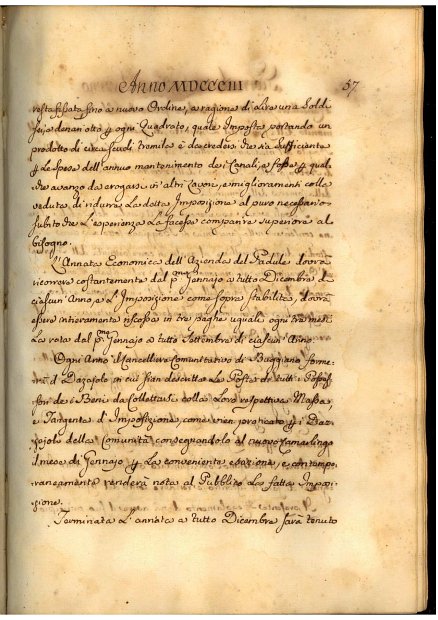 Anno MDCCCIII
57
resta fissata fino a nuovo Ordine, a ragione di Lire una Soldi
sei, e denari otto p ogni Quadrato, quale Imposta portando un
prodotto di circa scudi tremila è da credersi che sia sufficiente
p le spese dell'annuo mantenimento dei Canali, e fosse, e qual
che avanzo da erogarsi in altri lavori, e miglioramenti colla
veduta di ridurre la detta Imposizione al puro necessario
subito che l'esperienza la facesse comparire superiore al
bisogno.
L'Annata Economica dell'Azienda del Padule dovrà
ricorrere costantemente dal pmo Gennajo a tutto Dicembre di
ciascun'Anno, e l'Imposizione come sopra stabilita, dovrà
essere intieramente riscossa in tre paghe uguali ogni tre mesi
la rata dal pmo Gennajo a tutto Settembre di ciascun Anno.
Ogni Anno il Cancelliere Comunitativo di Buggiano forme-
rà il Dazzajolo in cui sian descritte le Poste di tutti i Posses-
sori de i Beni da Collettarsi colla loro respettiva Massa,
e Tangente d'Imposizione, come vien praticato p i Daz-
zajoli della Comunità consegnandolo al nuovo Camarlingo
il mese di Gennajo p la conveniente esazione, e contempo-
raneamente renderà nota al Pubblico la fatta Impo-
sizione.
Terminata l'annata a tutto Dicembre sarà tenuto